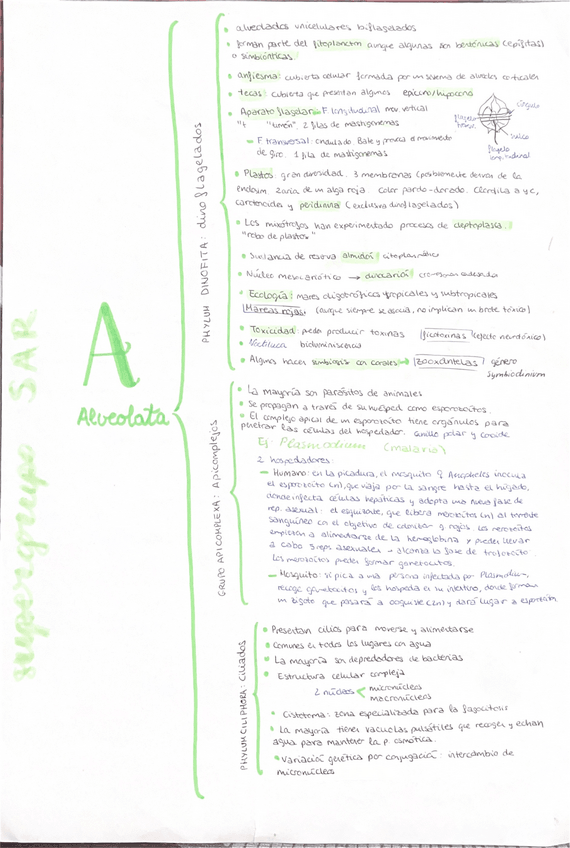 supergrupo SAR
A
Alveolata
PHYLUM DINOFITA: dinoflagelados
• alveolados unicelulares biflagelados
• forman parte del fitoplancton aunque algunas son bentónicas (epífitas)
o simbiónticas.
• anfiesma: cubierta celular formada por un sistema de alveolos corticales
• tecas: cubierta que presentan algunos epicono/hypocono
• Aparato flagelar F longitudinal mov. vertical
"timón". 2 filas de mastigonemas
F transversal: ondulado. Bate y provoca el movimiento
de giro. 1 fila de mastigonemas
cíngulo
flagelo
transv.
sulco
flagelo
longitudinal
• Plastos: gran diversidad. 3 membranas (posiblemente derivan de la
endosim. 2aria de un alga roja. Color pardo-dorado. Clorofila a y c,
carotenoides y peridinina (exclusiva dinoflagelados)
• Los mixótrofos han experimentado procesos de cleptoplastia.
"robo de plastos"
• Sustancia de reserva almidón citoplasmático
• Núcleo mesocariótico → dinocarion cromosomas condensados
• Ecología: mares oligotróficos tropicales y subtropicales
Mareas rojas (aunque siempre se asocia, no implican un brote tóxico)
• Toxicidad: puede producir toxinas ficotoxinas (efecto neurotóxico)
• Noctiluca bioluminiscencia
• Algunos hacen simbiosis con corales → zooxantelas género
symbiodinium
GRUPO APICOMPLEXA: Apicomplejos
• La mayoría son parásitos de animales
• Se propagan a través de su huésped como esporozoitos.
• El complejo apical de un esporozoito tiene orgánulos para
penetrar las células del hospedador. anillo polar y conoide
Ej: Plasmodium (malaria)
2 hospedadores:
– Humano: en la picadura, el mosquito ♀ Anopheles inocula
el esporozoito (n), que viaja por la sangre hasta el hígado,
donde infecta células hepáticas y adopta una nueva fase de
rep. asexual: el esquizonte, que libera merozoitos (n) al torrente
sanguíneo con el objetivo de colonizar g. rojos. Los merozoitos
empiezan a alimentarse de la hemoglobina y pueden llevar
a cabo 3 reps asexuales → alcanza la fase de trofozoito.
Los merozoitos pueden formar gametocitos.
– Mosquito: si pica a una persona infectada por Plasmodium,
recoge gametocitos y los hospeda en su intestino, donde forman
un zigoto que pasará a ooquiste (2n) y dará lugar a esporozoitos.
PHYLUM CILIPHORA: Ciliados
• Presentan cilios para moverse y alimentarse
• Comunes en todos los lugares con agua
• La mayoría son depredadores de bacterias
• Estructura celular compleja
2 núcleos < micronúcleos
macronúcleos
• Cistotoma: zona especializada para la fagocitosis
• La mayoría tienen vacuolas pulsátiles que recogen y echan
agua para mantener la p. osmótica.
• Variación genética por conjugación: intercambio de
micronúcleos